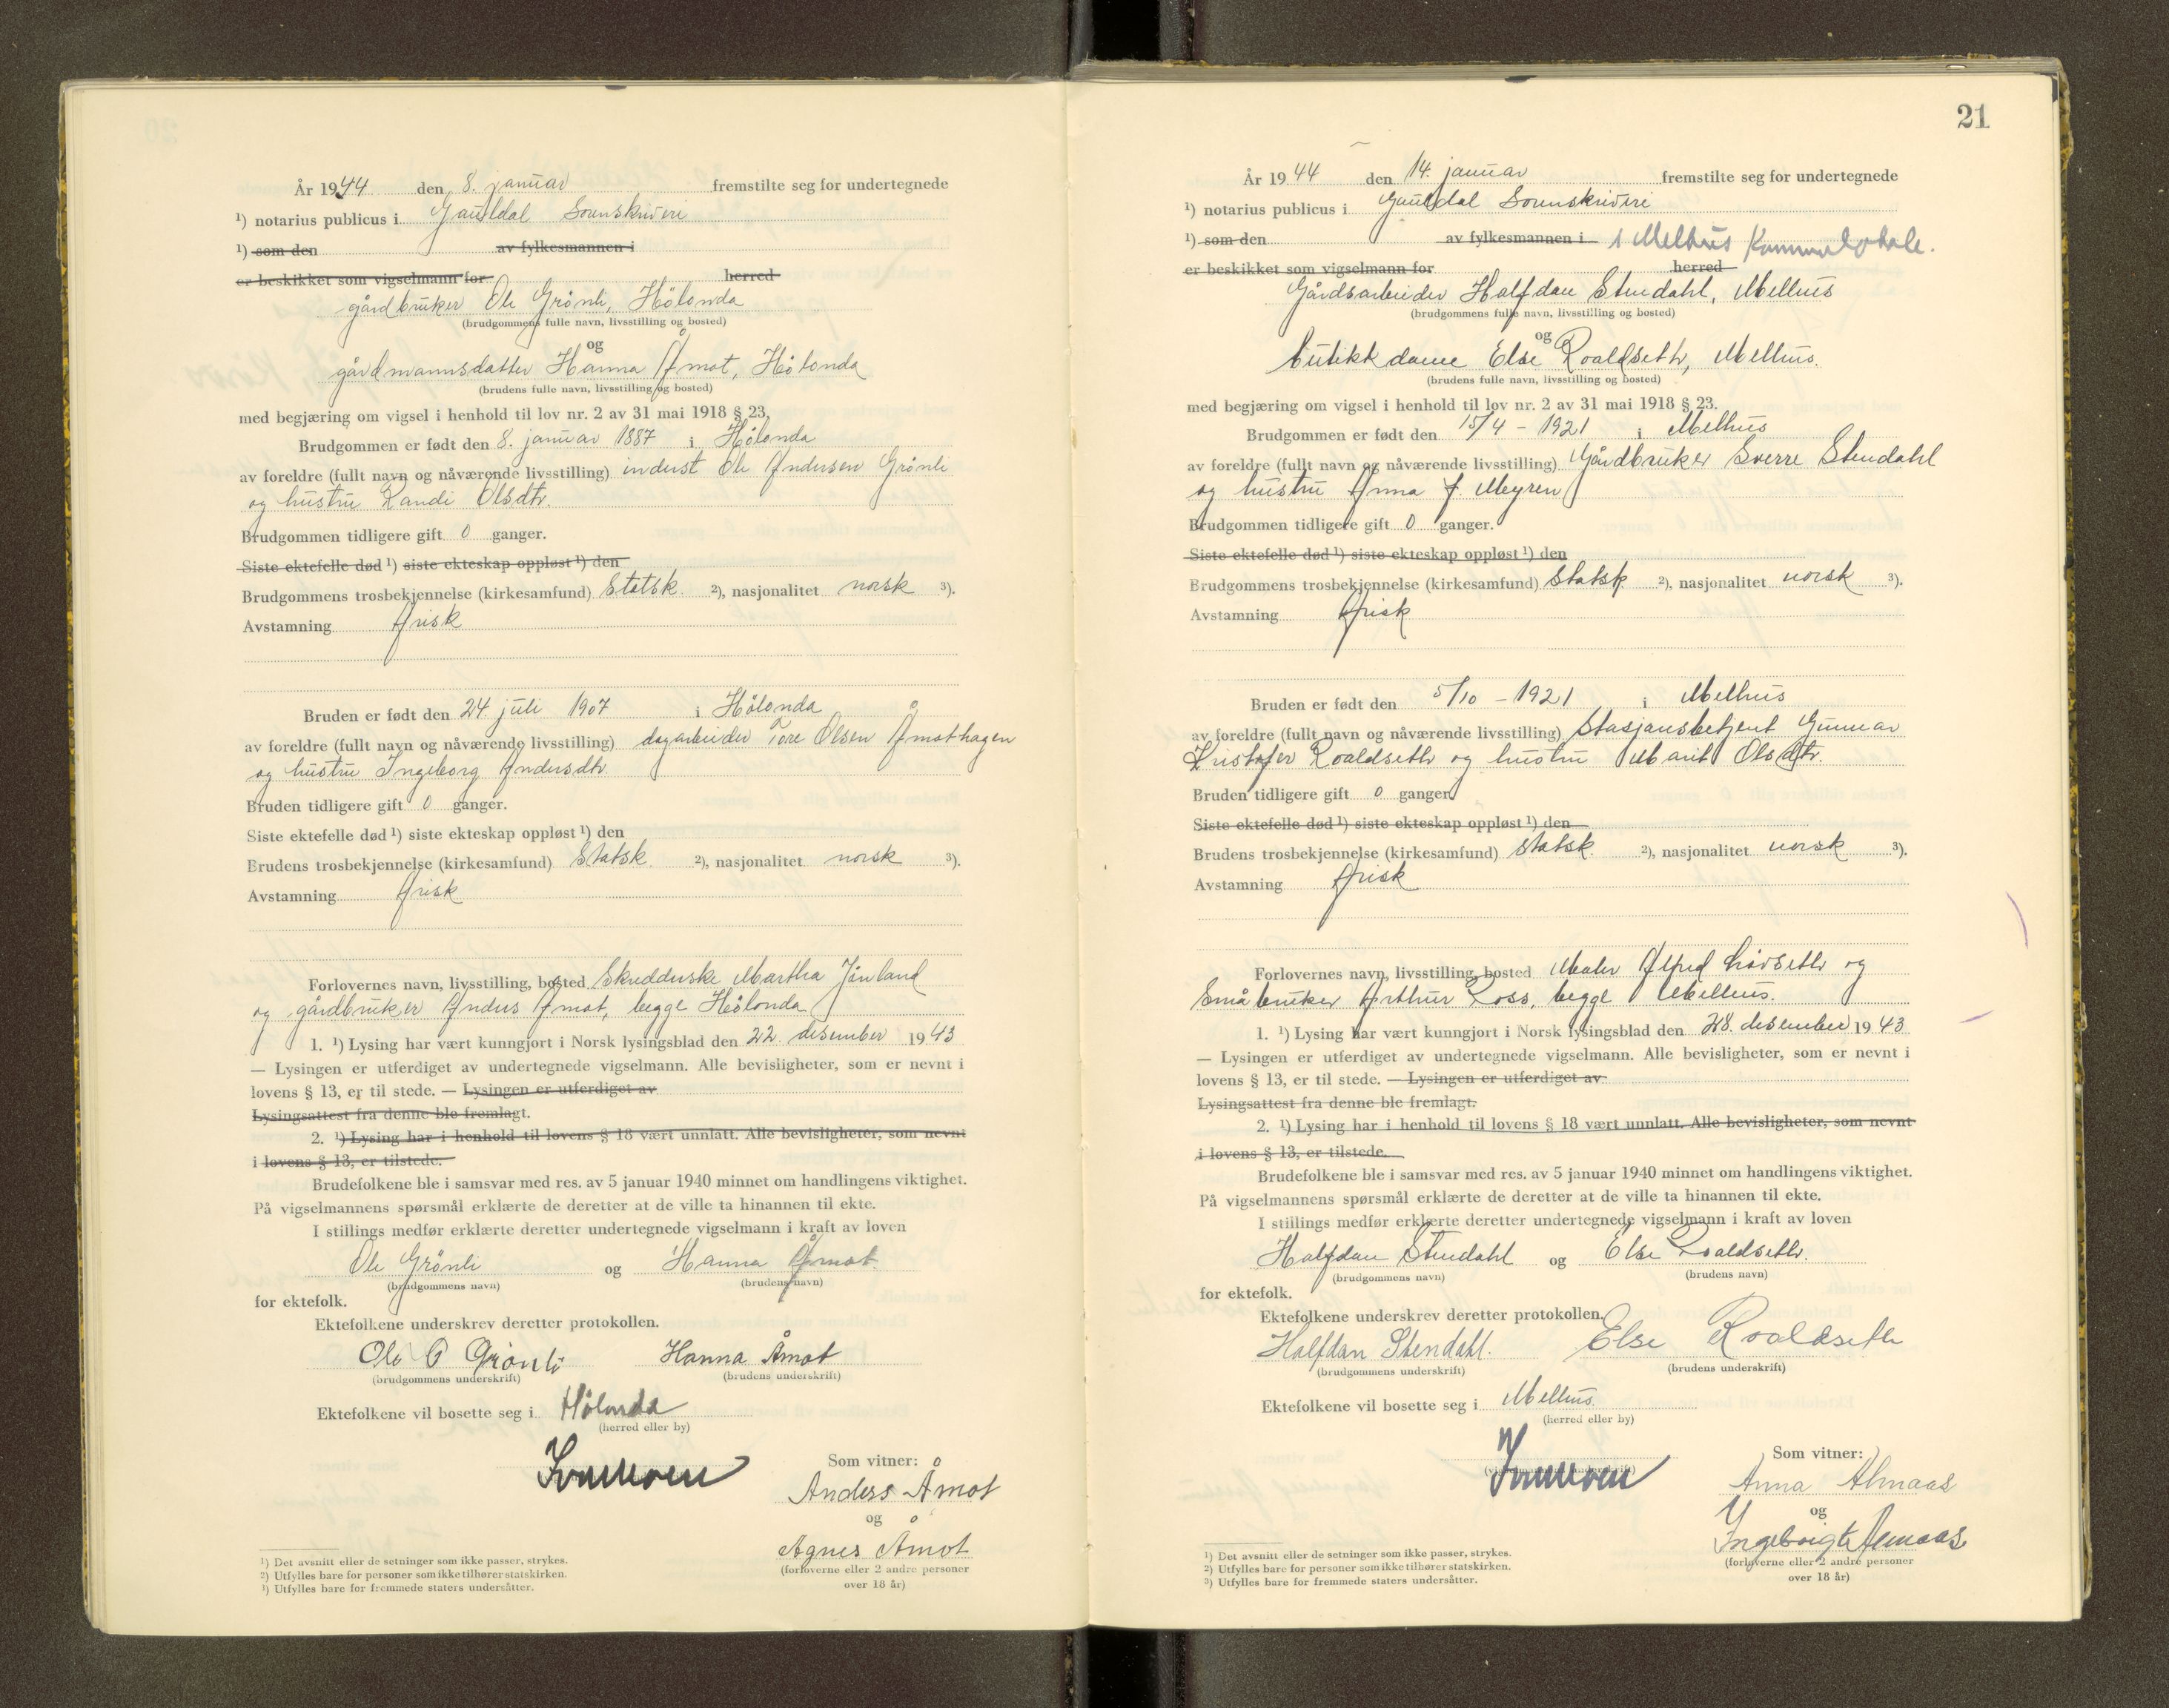 År 1944 den 8. januar fremstilte seg for undertegnede
¹) notarius publicus i Gauldal Sorenskriveri
¹) som den av fylkesmannen i
er beskikket som vigselmann for herred
gårdbruker Ole Grönli, Hölonda
(brudgommens fulle navn, livsstilling og bosted)
og
gårdmannsdatter Hanna Åmot, Hölonda
(brudens fulle navn, livsstilling og bosted)
med begjæring om vigsel i henhold til lov nr. 2 av 31 mai 1918 § 23,
Brudgommen er født den 8. januar 1887 i Hölonda
av foreldre (fullt navn og nåværende livsstilling) inderst Ole Andersen Grönli
og hustru Randi Olsdtr.
Brudgommen tidligere gift 0 ganger.
Siste ektefelle død ¹) siste ekteskap oppløst ¹) den
Brudgommens trosbekjennelse (kirkesamfund) Statsk. ²), nasjonalitet norsk ³).
Avstamning Arisk
Bruden er født den 24. juli 1907 i Hölonda
av foreldre (fullt navn og nåværende livsstilling) dagarbeider Tore Olsen Åmothagen
og hustru Ingeborg Andersdtr.
Bruden tidligere gift 0 ganger.
Siste ektefelle død ¹) siste ekteskap oppløst ¹) den
Brudens trosbekjennelse (kirkesamfund) Statsk. ²), nasjonalitet norsk ³).
Avstamning Arisk
Forlovernes navn, livsstilling, bosted Skredderske Martha
og gårdbruker Anders Åmot, begge Hölonda
1. ¹) Lysing har vært kunngjort i Norsk lysingsblad den 22. desember 1943
— Lysingen er utferdiget av undertegnede vigselmann. Alle bevisligheter, som er nevnt i
lovens § 13, er til stede. — Lysingen er utferdiget av
Lysingsattest fra denne ble fremlagt.
2. ¹) Lysing har i henhold til lovens § 18 vært unnlatt. Alle bevisligheter, som nevnt
i lovens § 13, er tilstede.
Brudefolkene ble i samsvar med res. av 5 januar 1940 minnet om handlingens viktighet.
På vigselmannens spørsmål erklærte de deretter at de ville ta hinannen til ekte.
I stillings medfør erklærte deretter undertegnede vigselmann i kraft av loven
Ole Grönli og Hanna Åmot.
(brudgommens navn) (brudens navn)
for ektefolk.
Ektefolkene underskrev deretter protokollen.
Ole O Grönli Hanna Åmot
(brudgommens underskrift) (brudens underskrift)
Ektefolkene vil bosette seg i Hölonda
(herred eller by)
Som vitner:
Anders Åmot
og
Agnes Åmot
(forloverne eller 2 andre personer
over 18 år)
¹) Det avsnitt eller de setninger som ikke passer, strykes.
²) Utfylles bare for personer som ikke tilhører statskirken.
³) Utfylles bare for fremmede staters undersåtter.
21
År 1944 den 14. januar fremstilte seg for undertegnede
¹) notarius publicus i Gauldal Sorenskriveri
¹) som den av fylkesmannen i i Melhus Kommunelokale.
er beskikket som vigselmann for herred
Gårdsarbeider Halfdan Stendahl, Melhus
(brudgommens fulle navn, livsstilling og bosted)
og
butikkdame Else Roaldseth, Melhus.
(brudens fulle navn, livsstilling og bosted)
med begjæring om vigsel i henhold til lov nr. 2 av 31 mai 1918 § 23.
Brudgommen er født den 15/4 - 1921 i Melhus
av foreldre (fullt navn og nåværende livsstilling) Gårdbruker Sverre Stendahl
og hustru Anna f. Meyren
Brudgommen tidligere gift 0 ganger.
Siste ektefelle død ¹) siste ekteskap oppløst ¹) den
Brudgommens trosbekjennelse (kirkesamfund) Statsk ²), nasjonalitet norsk ³).
Avstamning Arisk
Bruden er født den 5/10 - 1921 i Melhus
av foreldre (fullt navn og nåværende livsstilling) Stasjonsbetjent Gunnar
Kristofer Roaldseth og hustru Marit Olsdtr.
Bruden tidligere gift 0 ganger.
Siste ektefelle død ¹) siste ekteskap oppløst ¹) den
Brudens trosbekjennelse (kirkesamfund) statsk. ²), nasjonalitet norsk ³).
Avstamning Arisk
Forlovernes navn, livsstilling, bosted Maler Alfred Lövseth og
Småbruker Arthur Ross, begge Melhus.
1. ¹) Lysing har vært kunngjort i Norsk lysingsblad den 28. desember 1943
— Lysingen er utferdiget av undertegnede vigselmann. Alle bevisligheter, som er nevnt i
lovens § 13, er til stede. — Lysingen er utferdiget av
Lysingsattest fra denne ble fremlagt.
2. ¹) Lysing har i henhold til lovens § 18 vært unnlatt. Alle bevisligheter, som nevnt
i lovens § 13, er tilstede.
Brudefolkene ble i samsvar med res. av 5 januar 1940 minnet om handlingens viktighet.
På vigselmannens spørsmål erklærte de deretter at de ville ta hinannen til ekte.
I stillings medfør erklærte deretter undertegnede vigselmann i kraft av loven
Halfdan Stendahl og Else Roaldseth.
(brudgommens navn) (brudens navn)
for ektefolk.
Ektefolkene underskrev deretter protokollen.
Halfdan Stendahl. Else Roaldseth
(brudgommens underskrift) (brudens underskrift)
Ektefolkene vil bosette seg i Melhus.
(herred eller by)
Som vitner:
Anna Almaas
og
Ingebrigt Almaas
(forloverne eller 2 andre personer
over 18 år)
¹) Det avsnitt eller de setninger som ikke passer, strykes.
²) Utfylles bare for personer som ikke tilhører statskirken.
³) Utfylles bare for fremmede staters undersåtter.